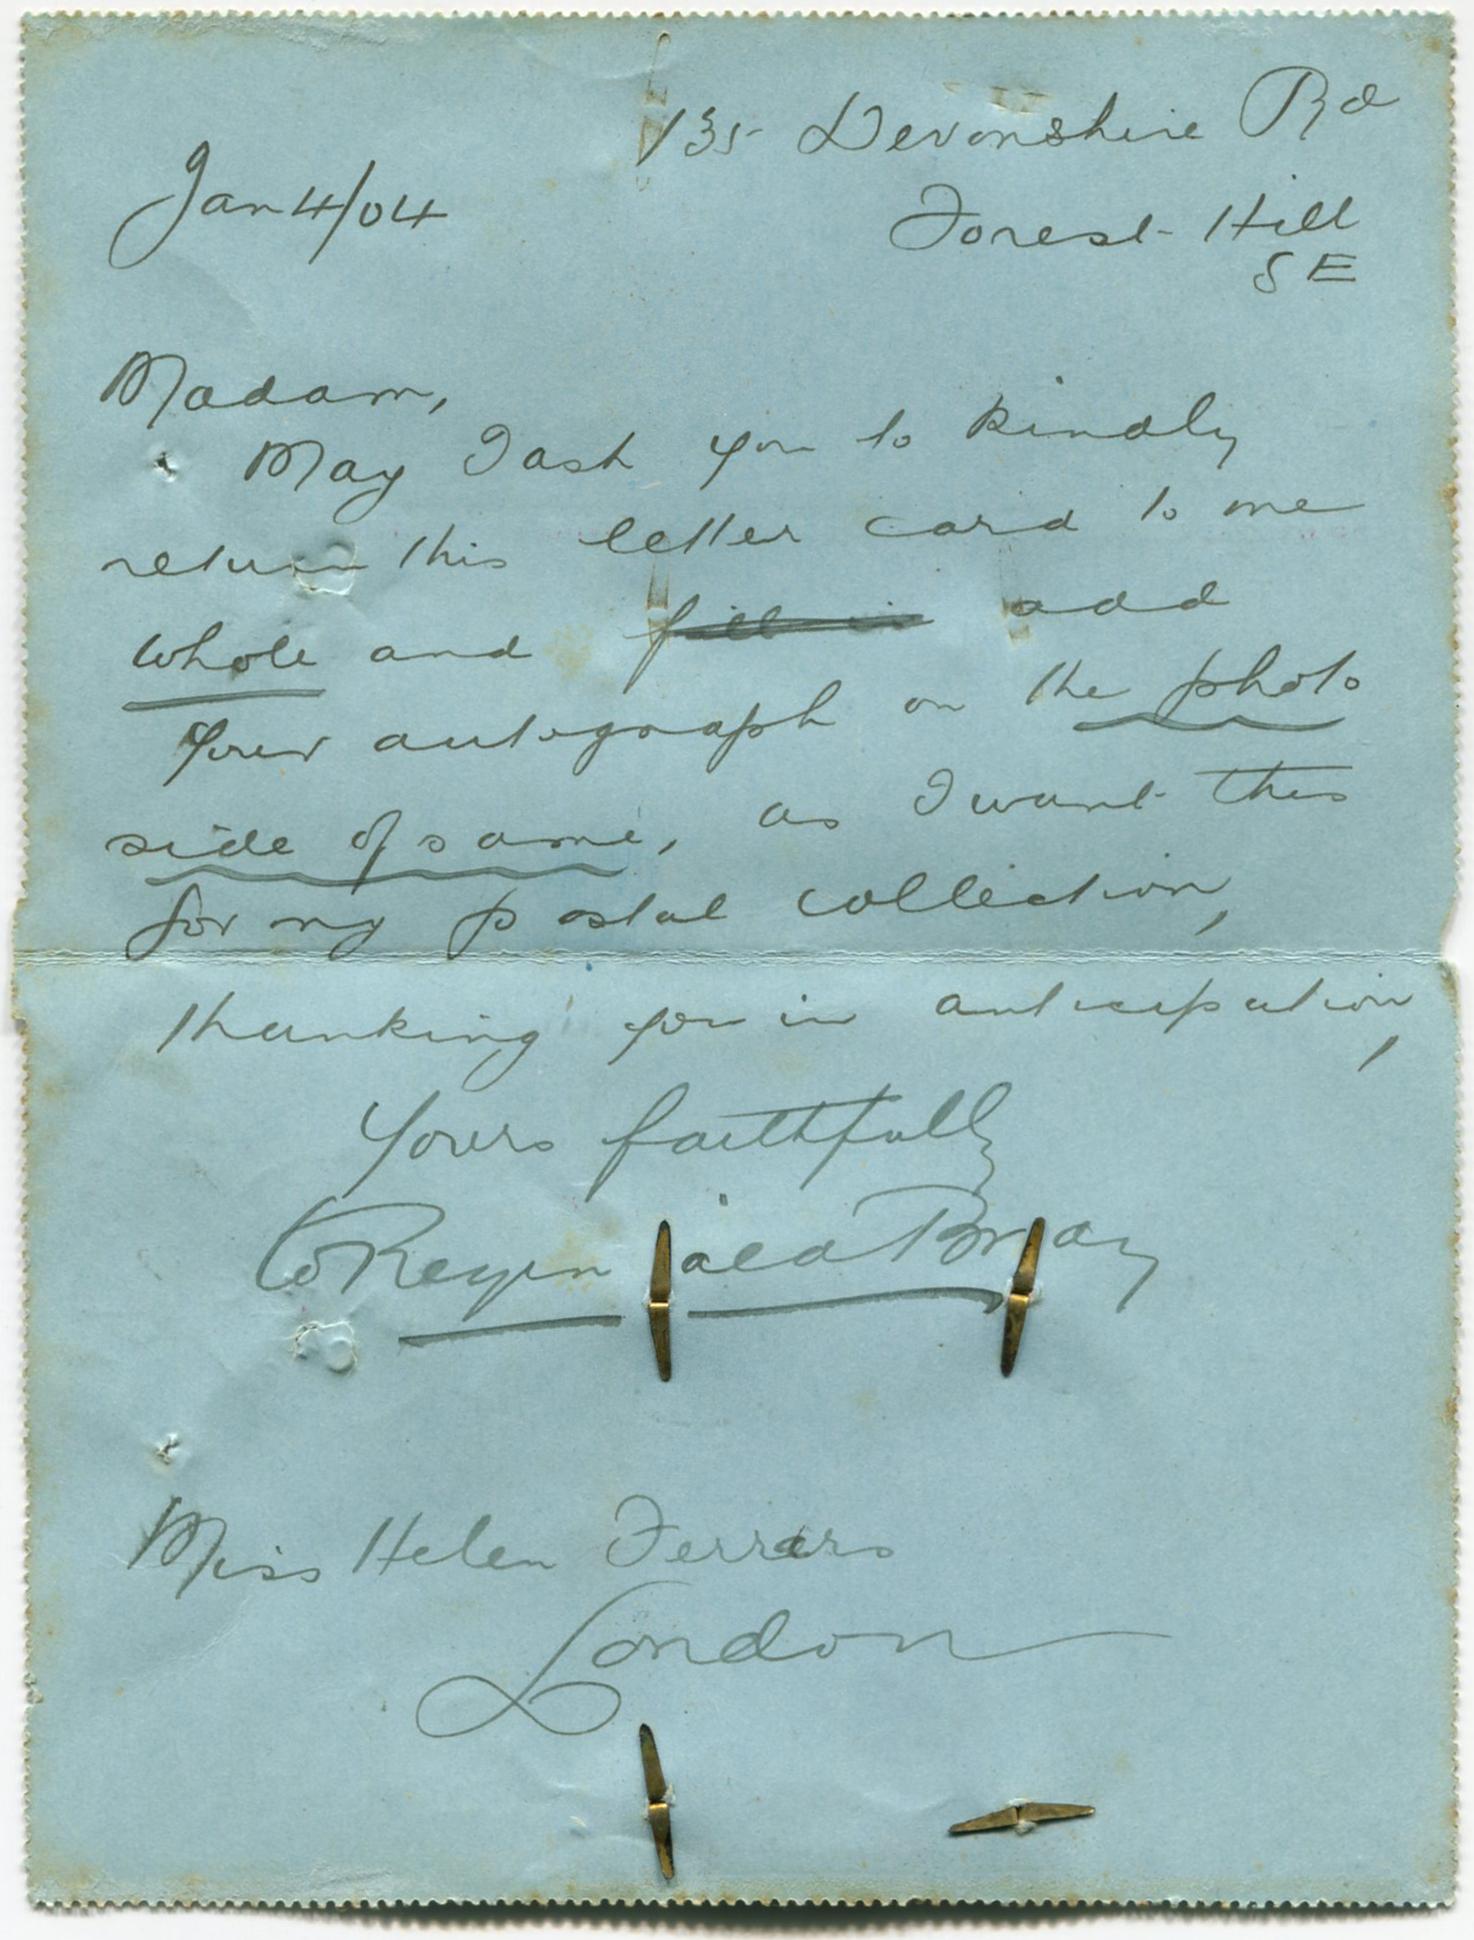 135 Devonshire Rd
Jan 4/04
Forest Hill
SE
Madam,
May I ask you to kindly
return this letter card to me
whole and fill in add
your autograph on the photo
side of same, as I want this
for my postal collection,
thanking you in anticipation,
Yours faithfully
W Reginald Bray
Miss Helen Ferrers
London